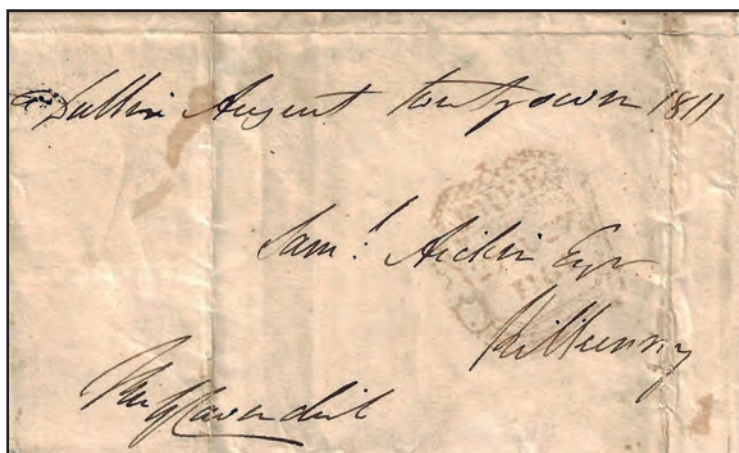 Dublin August twenty seven 1811
FREE
Saml. Aickin Esqr
Kilkenny
Cavendish